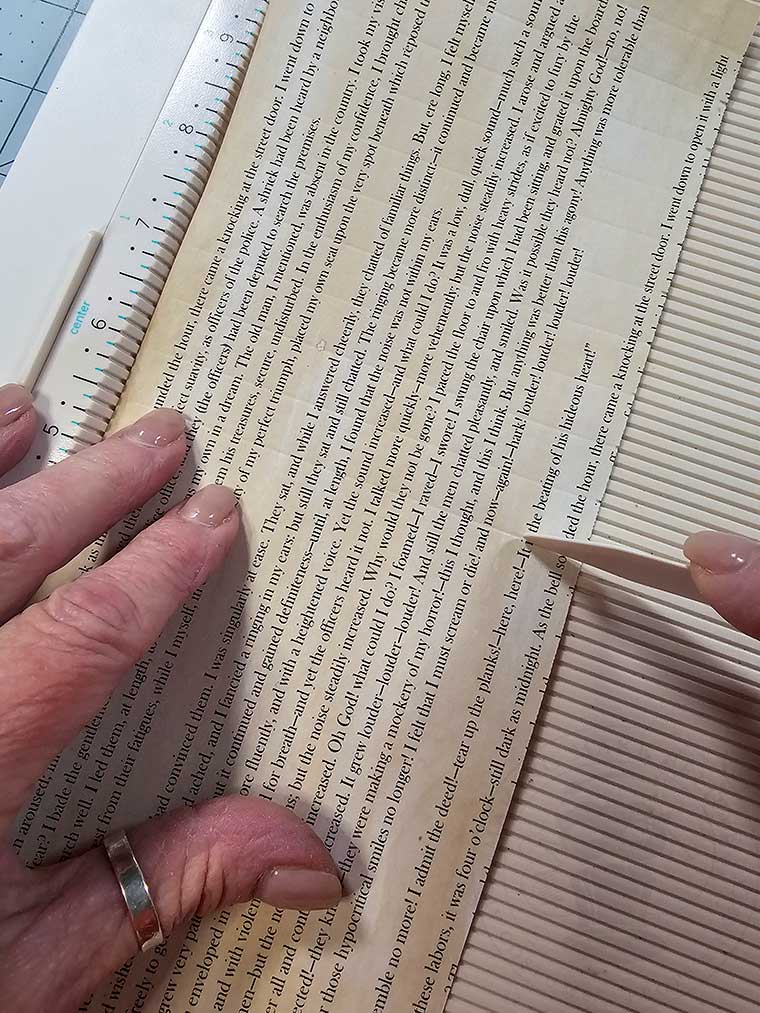 9
8
7
6
5
2
1
center
the hour, there came a knocking at the street door. I went down to
suavity, as officers of the police. A shriek had been heard by a
they (the officers) had been deputed to search the premises.
aroused; as my own in a dream. The old man, I mentioned, was absent in the country. I took my
fear? I bade the his treasures, secure, undisturbed. In the enthusiasm of my confidence, I brought
well. I led them, at length, of my perfect triumph, placed my own seat upon the very spot beneath which reposed
from their fatigues, while I myself,
convinced them. I was singularly at ease. They sat, and while I answered cheerily, they chatted of familiar things. But, ere long, I felt
ached, and I fancied a ringing in my ears: but still they sat and still chatted. The ringing became more distinct—it continued and became
it continued and gained definiteness—until, at length, I found that the noise was not within my ears.
grew very fluently, and with a heightened voice. Yet the sound increased—and what could I do? It was a low, dull, quick sound—much such a
enveloped in for breath—and yet the officers heard it not. I talked more quickly—more vehemently; but the noise steadily increased. I arose and argued
and with but the noise steadily increased. Why would they not be gone? I paced the floor to and fro with heavy strides, as if excited to fury by the
men—but the increased. Oh God! what could I do? I foamed—I raved—I swore! I swung the chair upon which I had been sitting, and grated it upon the
all and increased. It grew louder—louder—louder! And still the men chatted pleasantly, and smiled. Was it possible they heard not? Almighty God!—no, no!
they were making a mockery of my horror!—this I thought, and this I think. But anything was better than this agony! Anything was more tolerable than
those hypocritical smiles no longer! I felt that I must scream or die! and now—again!—hark! louder! louder! louder! louder!
no more! I admit the deed!—tear up the planks!—here, here!— the beating of his hideous heart!”
these labors, it was four o'clock—still dark as midnight. As the bell the hour, there came a knocking at the street door. I went down to open it with a light